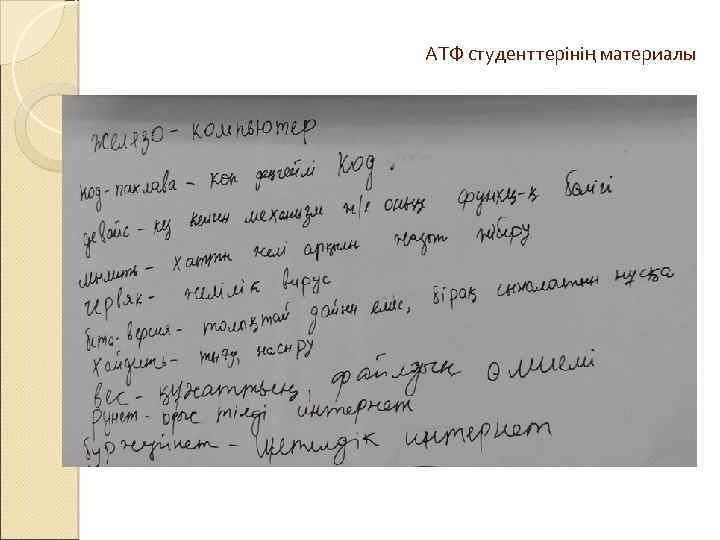 АТФ студенттерінің материалы
железо - компьютер
код-пахлава - көп деңгейлі код.
девайс - кез келген механизм ж/е оның функц-қ бөлігі
мылить - хатты желі арқылы жазып жіберу
червяк - желілік вирус
бита-версия - толықтай дайын емес, бірақ сыналатын нұсқа
хайдить - тығу, жасыру
вес - құжаттың, файлдың өлшемі
рунет - орыс тілді интернет
буржуйнет - шетелдік интернет